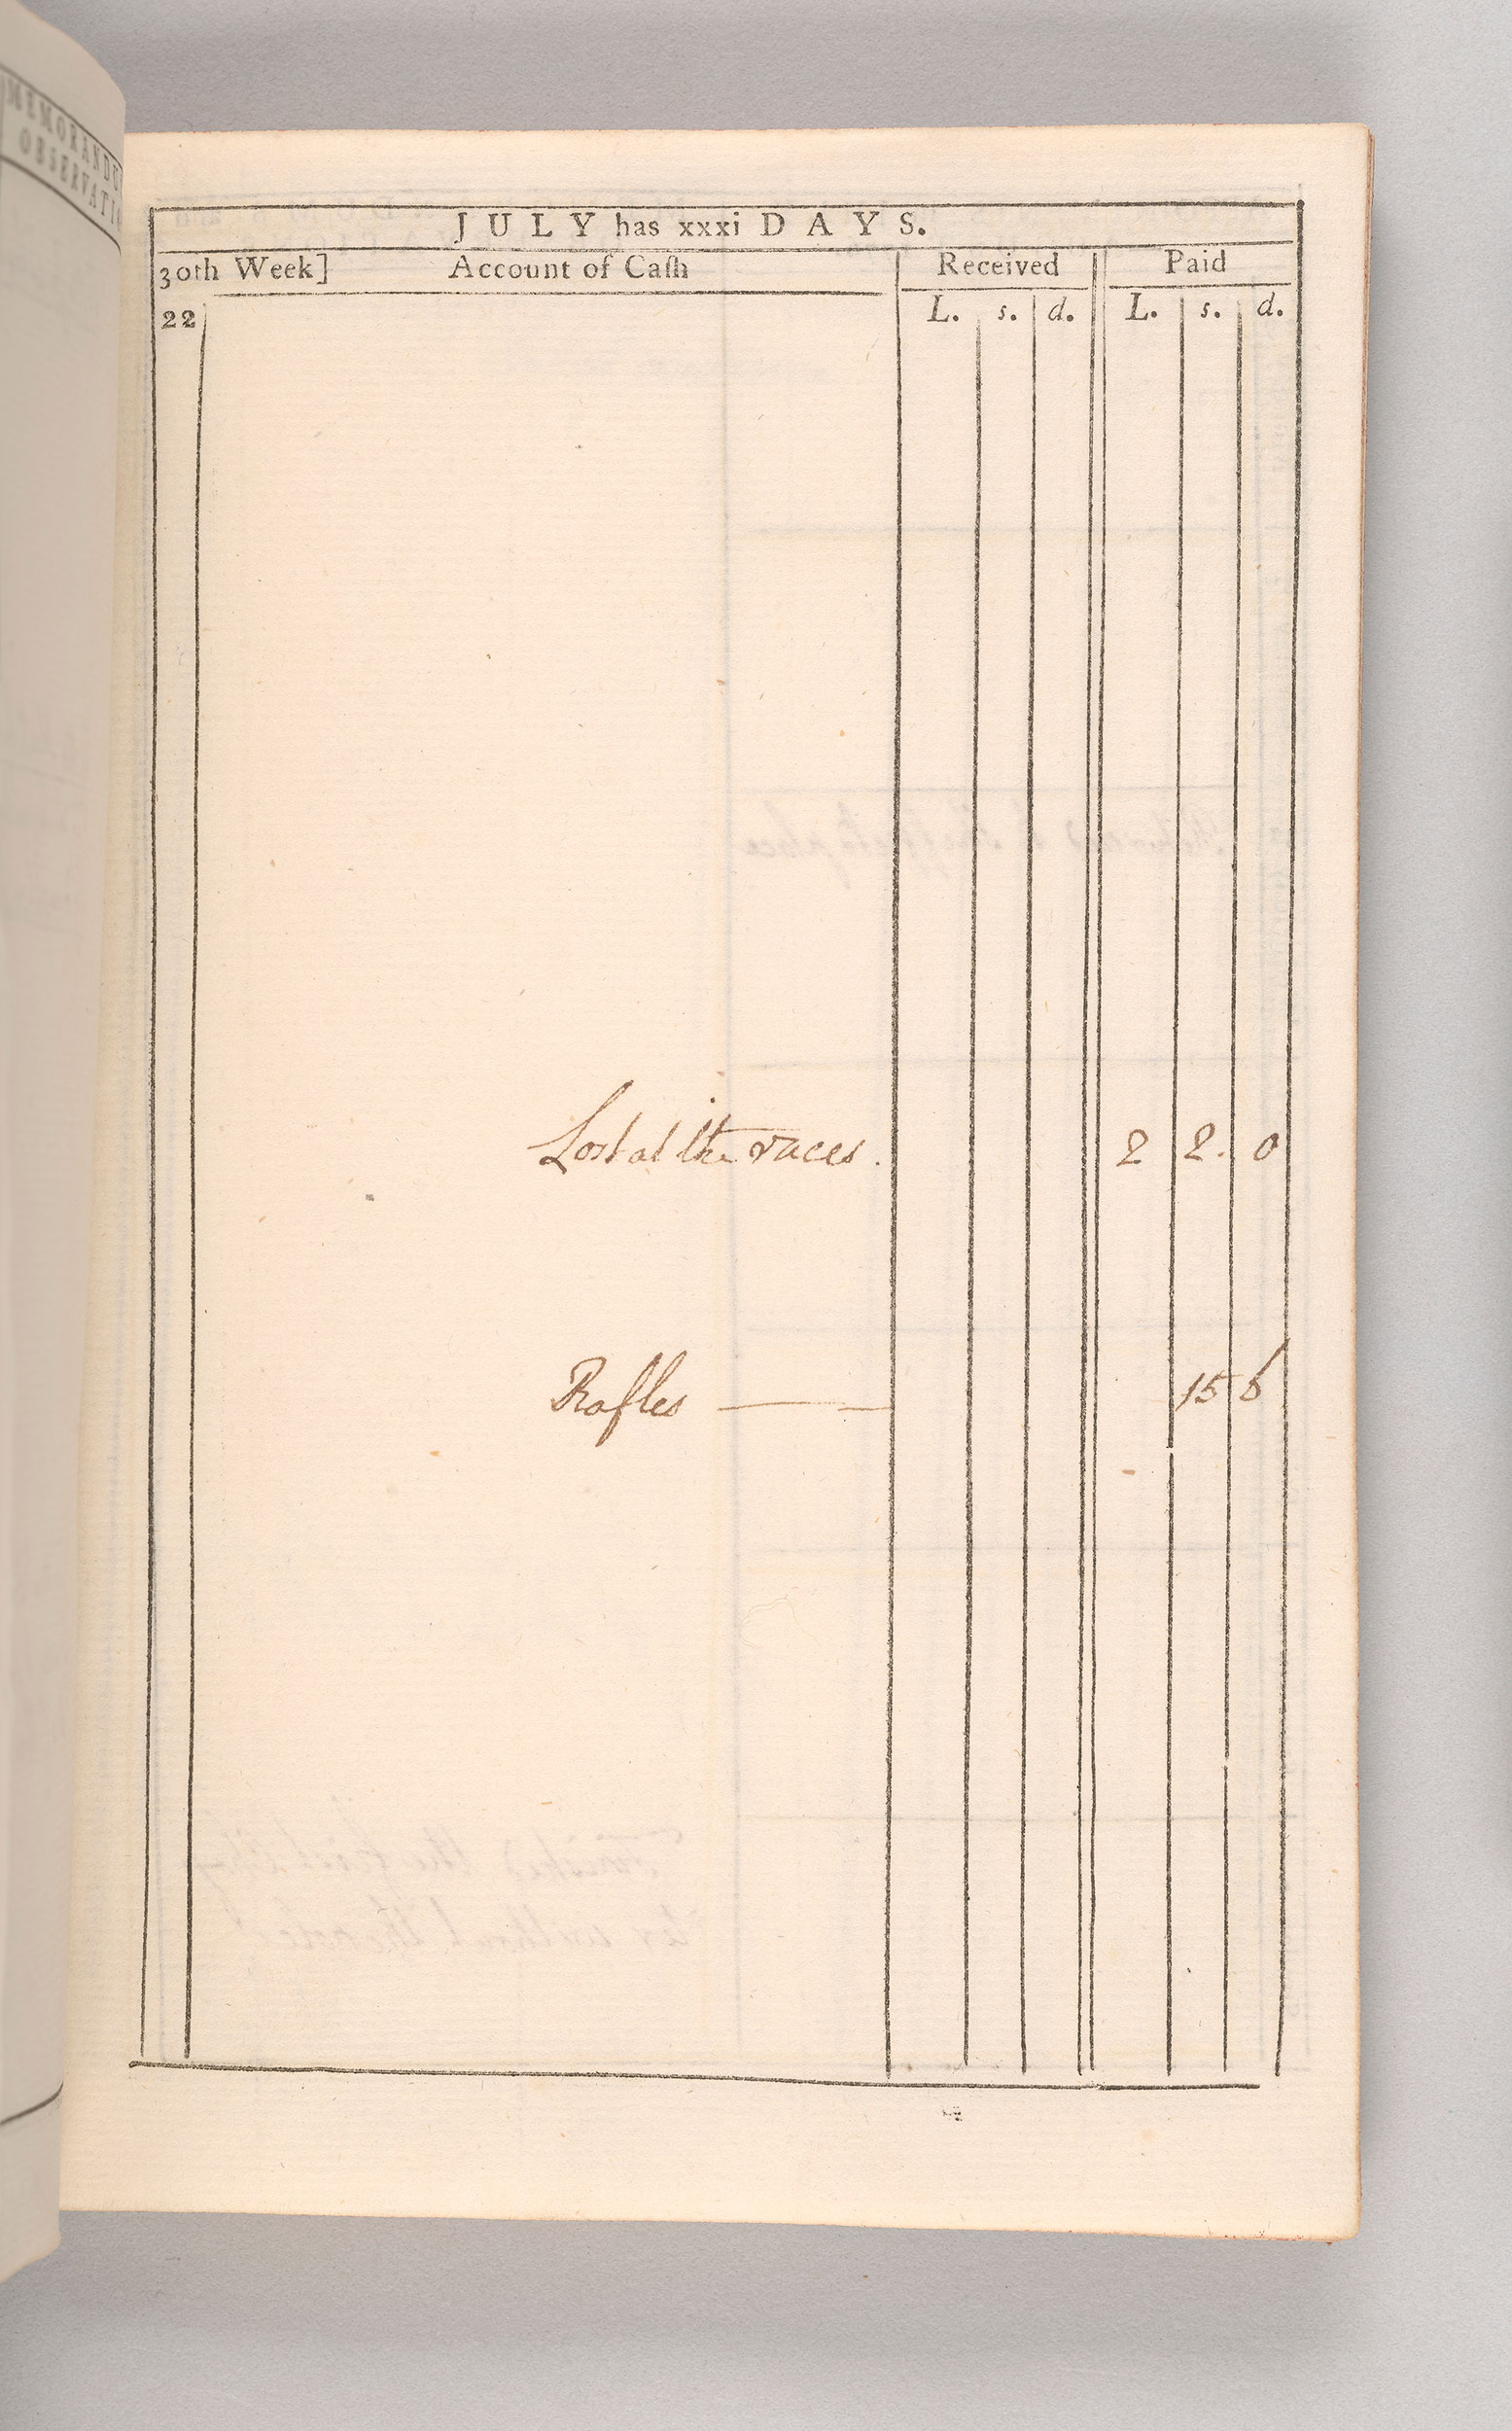 MEMORANDU
OBSERVATI
JULY has xxxi DAYS.
30th Week] Account of Caſh Received Paid
22 L. s. d. L. s. d.
Lost at the races. 2 2. 0
Rafles 15 6